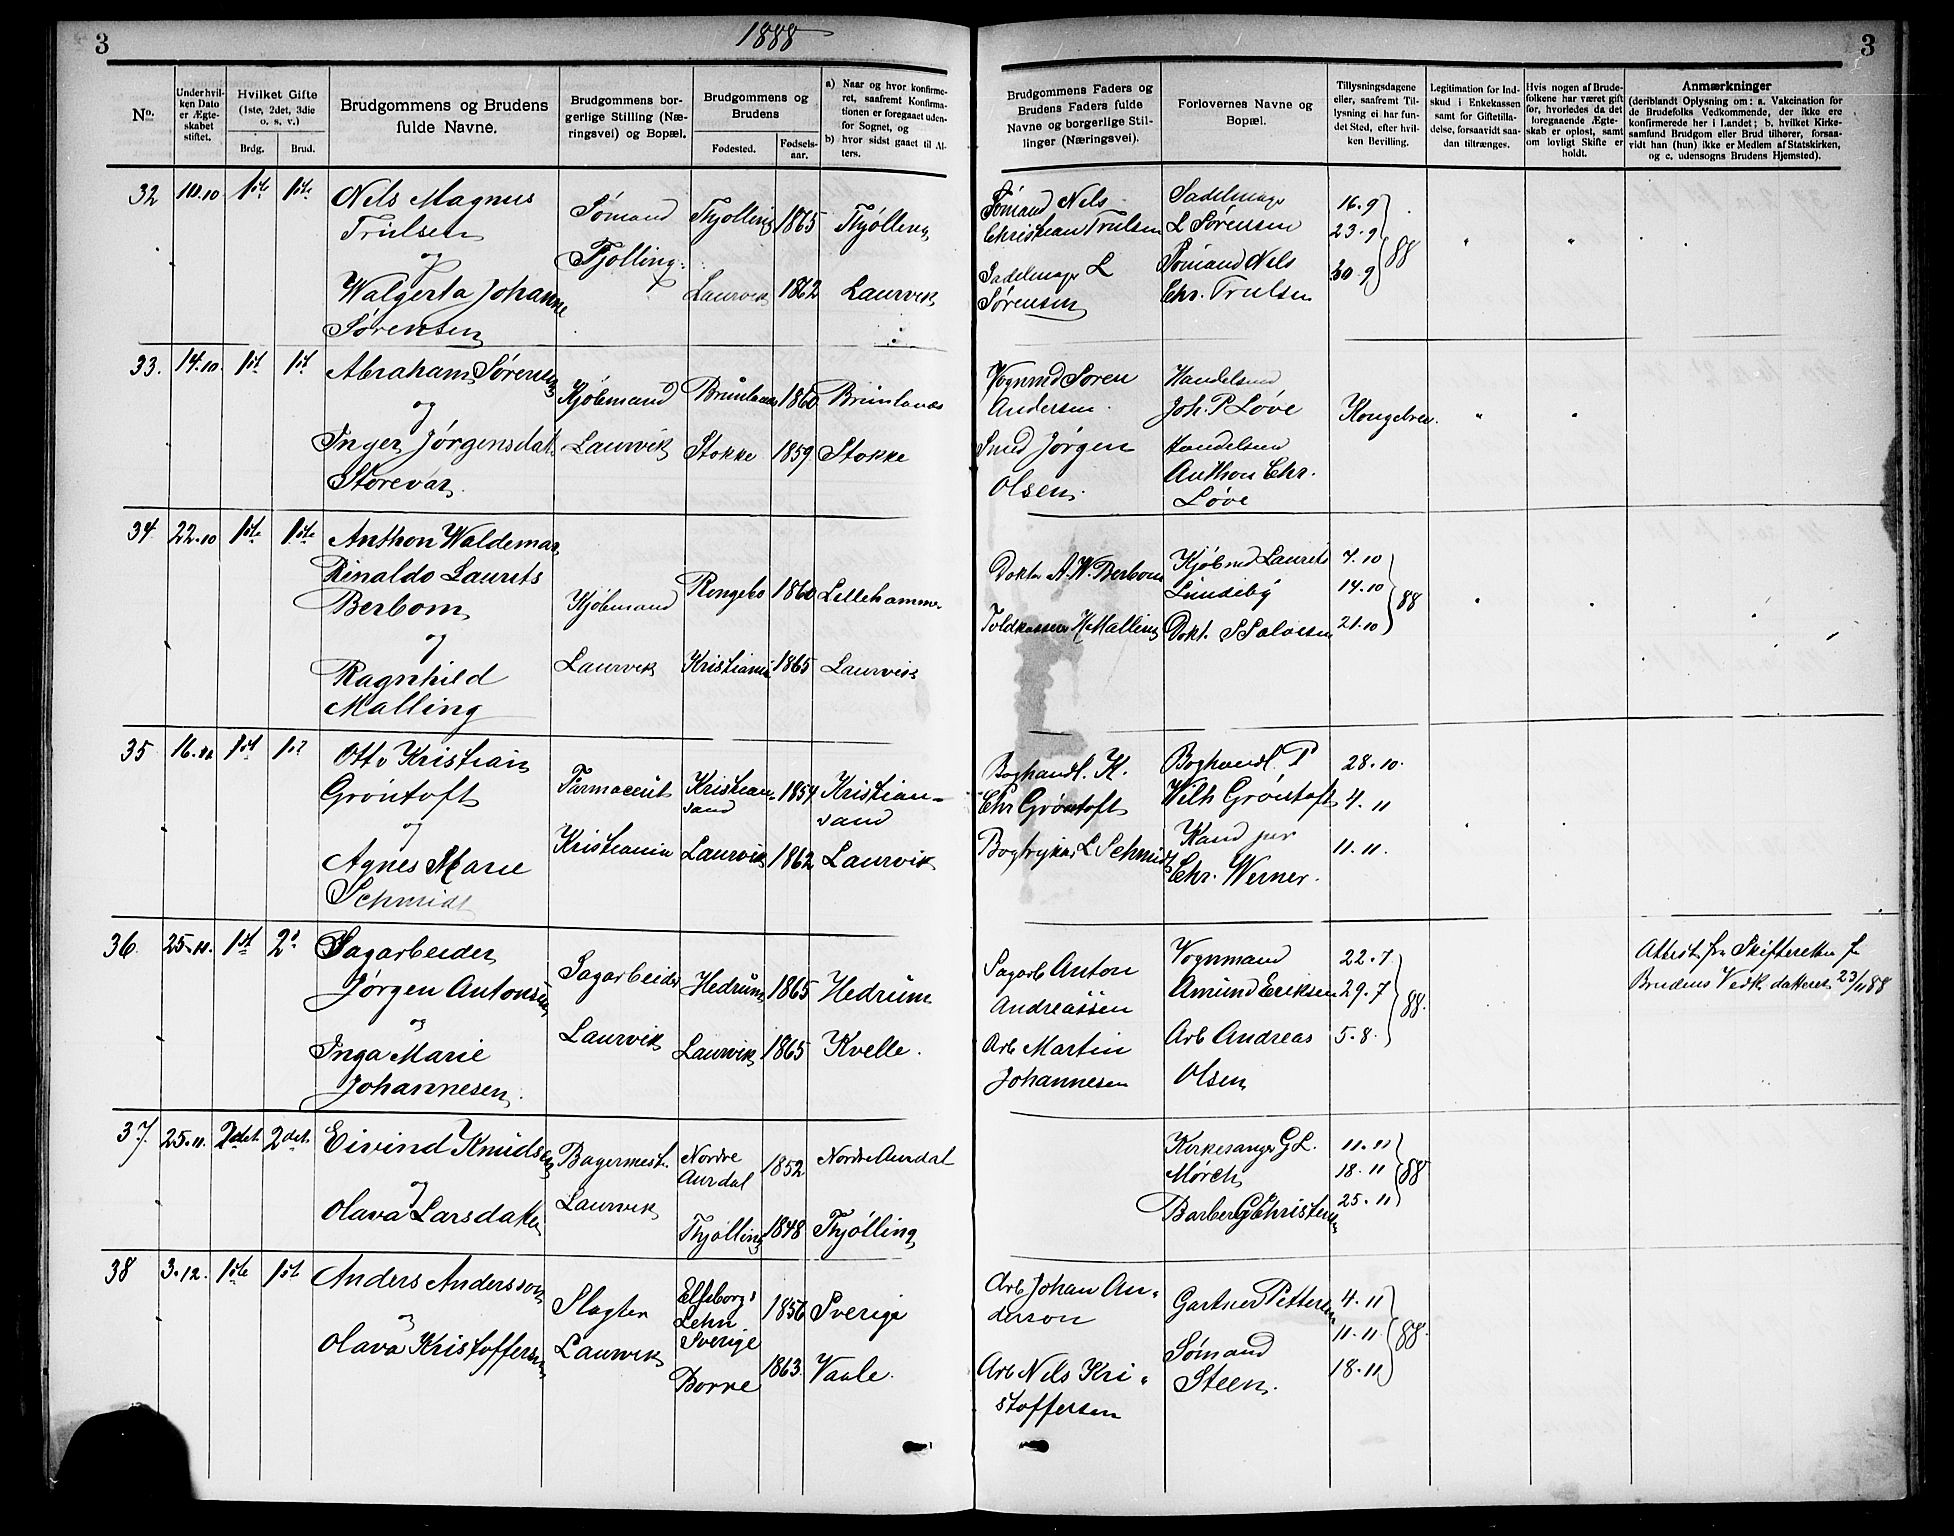 3
1888
3
No.
Under hvilken Dato er Ægteskabet stiftet.
Hvilket Gifte (1ste, 2det, 3die o. s. v.)
Brdg.
Brud.
Brudgommens og Brudens fulde Navne.
Brudgommens borgerlige Stilling (Næringsvei) og Bopæl.
Brudgommens og Brudens
Fødested.
Fødselsaar.
a) Naar og hvor konfirmeret, saafremt Konfirmationen er foregaaet udenfor Sognet, og
b) hvor sidst gaaet til Alters.
Brudgommens Faders og Brudens Faders fulde Navne og borgerlige Stillinger (Næringsvei).
Forlovernes Navne og Bopæl.
Tillysningsdagene eller, saafremt Tillysning ei har fundet Sted, efter hvilken Bevilling.
Legitimation for Indskud i Enkekassen samt for Giftetilladelse, forsaavidt saadan tiltrænges.
Hvis nogen af Brudefolkene har været gift, hvorledes da det foregaaende Ægteskab er opløst, samt om lovligt Skifte er holdt.
Anmærkninger
(deriblandt Oplysning om: a. Vakcination for de Brudefolks Vedkommende, der ikke ere konfirmerede her i Landet; b. hvilket Kirkesamfund Brudgom eller Brud tilhører, forsaavidt han (hun) ikke er Medlem af Statskirken, og c. udensogns Brudens Hjemsted).
32 10.10 1ste 1ste
Nels Magnus
Trulsen
og
Walgerta Johanne
Sørensen
Sømand
Tjølling
Thjølling 1865 Thjølling
Laurvik 1862 Laurvik
Sømand Nels
Christian Trulsen
Sadelmager L
Sørensen
Sadelmager
L Sørensen
Sømand Nels
Chr. Trulsen
16.9
23.9
30.9
88
33. 14.10 1st 1st
Abraham Sørensen
og
Inger Jørgensdat.
Storevar
Kjøbmand
Laurvik
Brunlanes 1860 Brunlanes
Stokke 1859 Stokke
Vognmd Soren
Andersen
Smed Jørgen
Olsen
Handelsmd
Joh. P Løve
Handelsmd
Anthon Chr.
Løve
Kongebrev.
34 22.10 1ste 1ste
Anthon Waldemar
Rinaldo Laurits
Berbom
og
Ragnhild
Malling
Kjøbmand
Laurvik
Rengebo 1860 Lillehammer
Kristiania 1865 Laurvik
Doktor A.W. Berbom
Toldkasserer H Malling
Kjøbmd Laurits
Lundeby
Dokt. S Salvesen
7.10
14.10
21.10
88
35 1st
Otto Kristian
Gröntoft
og
Agnes Marie
Schmidt
Farmaceut
Kristiania
Kristiansand 1854 Kristiansand
Laurvik 1862 Laurvik
Boghandl. K.
Chr Grøntoft
Bogtrykker L Schmidt
Boghandl. P
Wilh Gröntoft
Kand jur
Chr. Werner.
28.10.
4.11
11.11.
36. 25.11. 1st 2d
Sagarbeider
Jørgen Antonsen
og
Inga Marie
Johannesen.
Sagarbeider
Laurvik
Hedrum 1865 Hedrum
Laurvik 1865 Kvelle.
Sagarb Anton
Andreassen
Arb Martin
Johannesen
Vognmand
Amund Eriksen
Arb Andreas
Olsen
22.7
29.7
5.8.
88.
Attest fra Skifteretten f.
Brudens Vedk. datteret 23/11 88
37. 25.11. 2det. 2det.
Eivind Knudsen
og
Olava Larsdatter
Bagermest.
Laurvik
Nordre
Aurdal 1852 Nordre Aurdal
Thjølling 1848 Thjølling
Kirkesanger G L.
Mørch
Barber G Christensen
11.11
18.11
25.11
88
38 3.12. 1ste 1st
Anders Andersson
og
Olava Kristoffersen
Slagter
Laurvik
Elfsborgs
Lehn
Sverige
1856 Sverige
Borre 1863. Vaale.
Arb Johan An-
derson
Arb Nels Kri-
stoffersen
Gartner Pettersen
Sømand
Steen.
4.11
11.11
18.11
88.